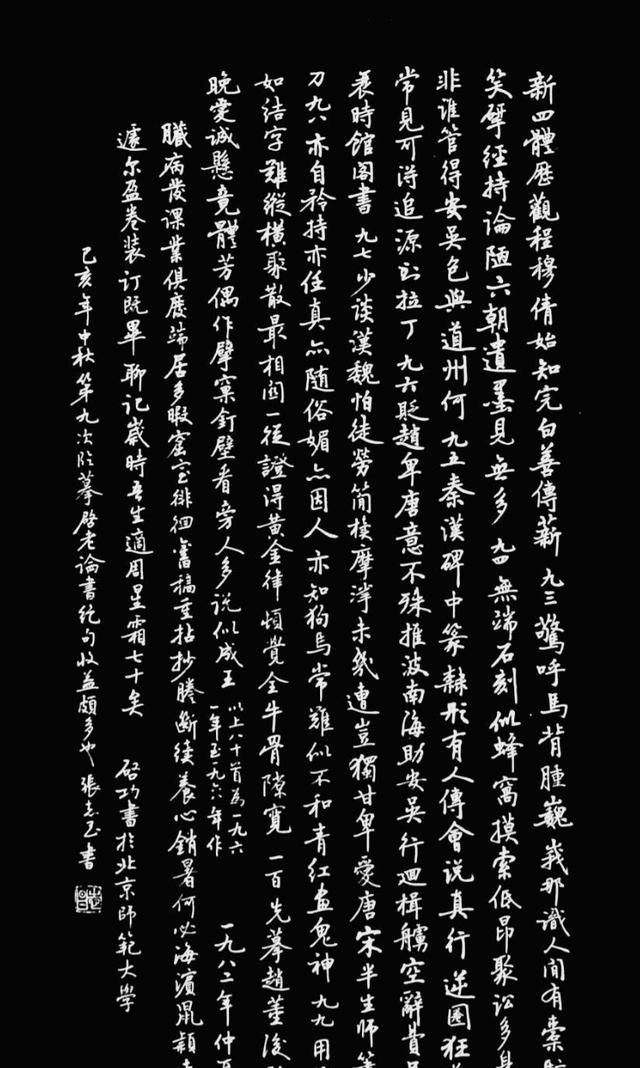 新四體歷觀程穆倩始知完白善傳薪 九三 驚呼馬背腫巍峩那識人間有橐駝
笑擘經持論陋六朝遺墨見無多 九四 無端石刻似蜂窩摸索低昂聚訟多身
非誰管得安吳包與道州何 九五 秦漢碑中篆隸形有人傳會說真行逆圈狂草
常見可得追源到拉丁 九六 貶趙卑唐意不殊推波南海助安吳行迴楫艣空辭費只
衰時館閣書 九七 少談漢魏怕徒勞簡牘摩挲未幾遭豈獨甘卑愛唐宋半生師筆
刀 九八 亦自矜持亦任真亦隨俗媚亦因人亦知狗馬常難似不和青紅畫鬼神 九九 用筆
如結字難縱橫聚散最相關一從證得黃金律頓覺全牛骨隙寬 一百 先摹趙董後
晚愛誠懸竟體芳偶作擘窠釘壁看旁人多說似成王 以上八十首為一九六一年至一九六六年作 一九八二年仲夏
臟病發課業俱廢端居多暇窰室徘徊舊稿重拈抄謄斷續養心銷暑何必海濱鼠穎
遽尔盈卷装订既畢聊记歲時吾生適周星霜七十矣 启功書於北京師範大學
己亥年中秋第九次临摹启老論書绝句收益頗多也 張志玉書